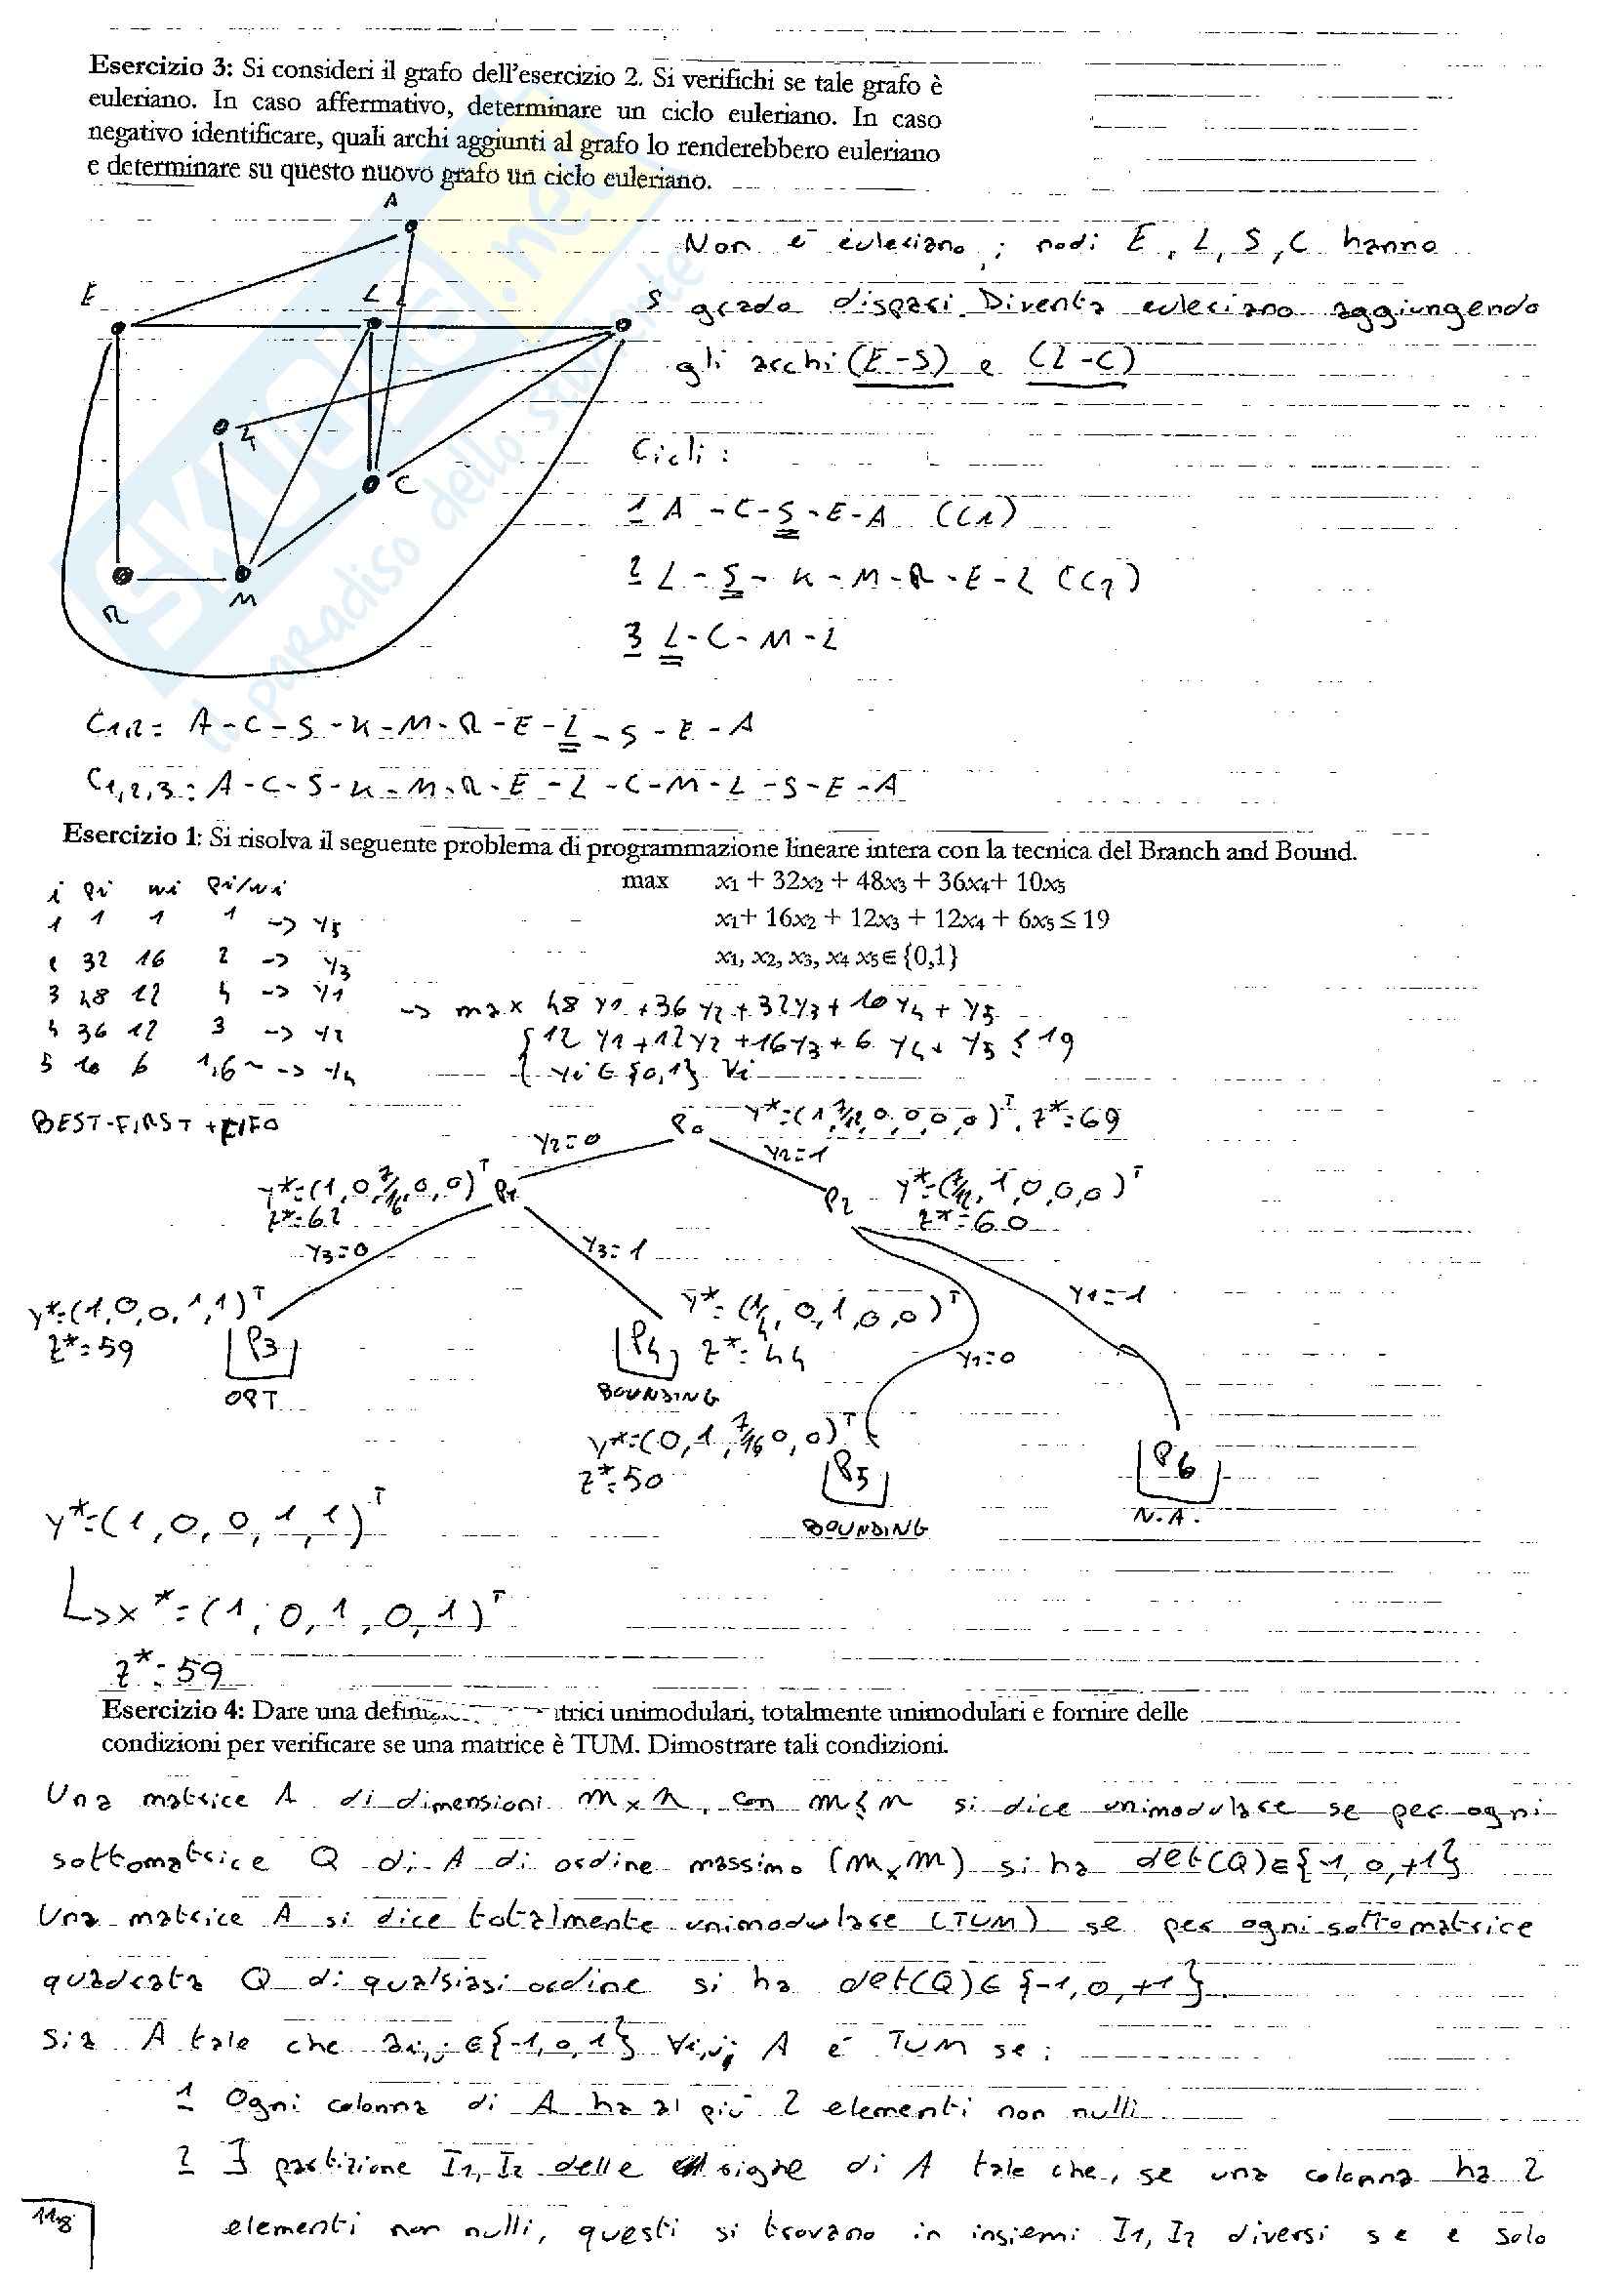 Esercizio 3: Si consideri il grafo dell'esercizio 2. Si verifichi se tale grafo è
euleriano. In caso affermativo, determinare un ciclo euleriano. In caso
negativo identificare, quali archi aggiunti al grafo lo renderebbero euleriano
e determinare su questo nuovo grafo un ciclo euleriano.
A
E
L
S
K
C
R
M
Non è euleriano; nodi E, L, S, C hanno
grado dispari. Diventa euleriano aggiungendo
gli archi (E-S) e (L-C)
Cicli:
1 A-C-S-E-A (C1)
2 L-S-K-M-R-E-L (C2)
3 L-C-M-L
C1,2= A-C-S-K-M-R-E-L-S-E-A
C1,2,3: A-C-S-K-M-R-E-L-C-M-L-S-E-A
Esercizio 1: Si risolva il seguente problema di programmazione lineare intera con la tecnica del Branch and Bound.
max x1 + 32x2 + 48x3 + 36x4+ 10x5
x1+ 16x2 + 12x3 + 12x4 + 6x5 ≤ 19
x1, x2, x3, x4 x5 ∈ {0,1}
i pi wi pi/wi
1 1 1 1 -> y5
2 32 16 2 -> y3
3 48 12 4 -> y1
4 36 12 3 -> y2
5 10 6 1,6~ -> y4
-> max 48 y1 +36 y2 +32y3 +10 y4 + y5
{12 y1+12y2 +16y3 +6 y4+ y5 ≤ 19
{ yi ∈ {0,1} ∀i
BEST-FIRST + FIFO
P0 y*=(1,7/12,0,0,0)T, z*=69
y2=0
y2=1
y*=(1,0,7/16,0,0)T P1
z*=62
P2 y*=(7/12,1,0,0,0)T
z*=60
y3=0
y3=1
y1=1
y1=0
y*=(1,0,0,1,1)T
z*=59
P3
OPT
y*=(1/4,0,1,0,0)T
P4 z*=44
BOUNDING
y*=(0,1,7/16,0,0)T
z*=50
P5
BOUNDING
P6
N.A.
y*=(1,0,0,1,1)T
↳x*=(1,0,1,0,1)T
z*=59
Esercizio 4: Dare una defini trici unimodulari, totalmente unimodulari e fornire delle
condizioni per verificare se una matrice è TUM. Dimostrare tali condizioni.
Una matrice A di dimensioni m×n, con m≤n si dice unimodulare se per ogni
sottomatrice Q di A di ordine massimo (m×m) si ha det(Q)∈{-1,0,+1}
Una matrice A si dice totalmente unimodulare (TUM) se per ogni sottomatrice
quadrata Q di qualsiasi ordine si ha det(Q)∈{-1,0,+1}.
Sia A tale che ai,j ∈{-1,0,1} ∀i,j; A è TUM se:
1 Ogni colonna di A ha al più 2 elementi non nulli
2 ∃ partizione I1, I2 delle righe di A tale che, se una colonna ha 2
elementi non nulli, questi si trovano in insiemi I1, I2 diversi se e solo
118
SKUOLA.net
il paradiso dello studente